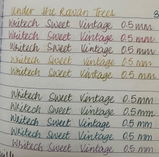 under the Rowan Trees
Whitech Sweet Vintage 0.5mm
Whitech Sweet Vintage 0.5mm
Whitech Sweet Vintage 0.5mm
Whitech Sweet Vintage 0.5mm
Whitech Sweet Vintage 0.5mm
Whitech Sweet Vintage 0.5mm
Whitech Sweet Vintage 0.5mm
Whitech Sweet Vintage 0.5mm
Whitech Sweet Vintage 0.5mm
Whitech Sweet Vintage 0.5mm